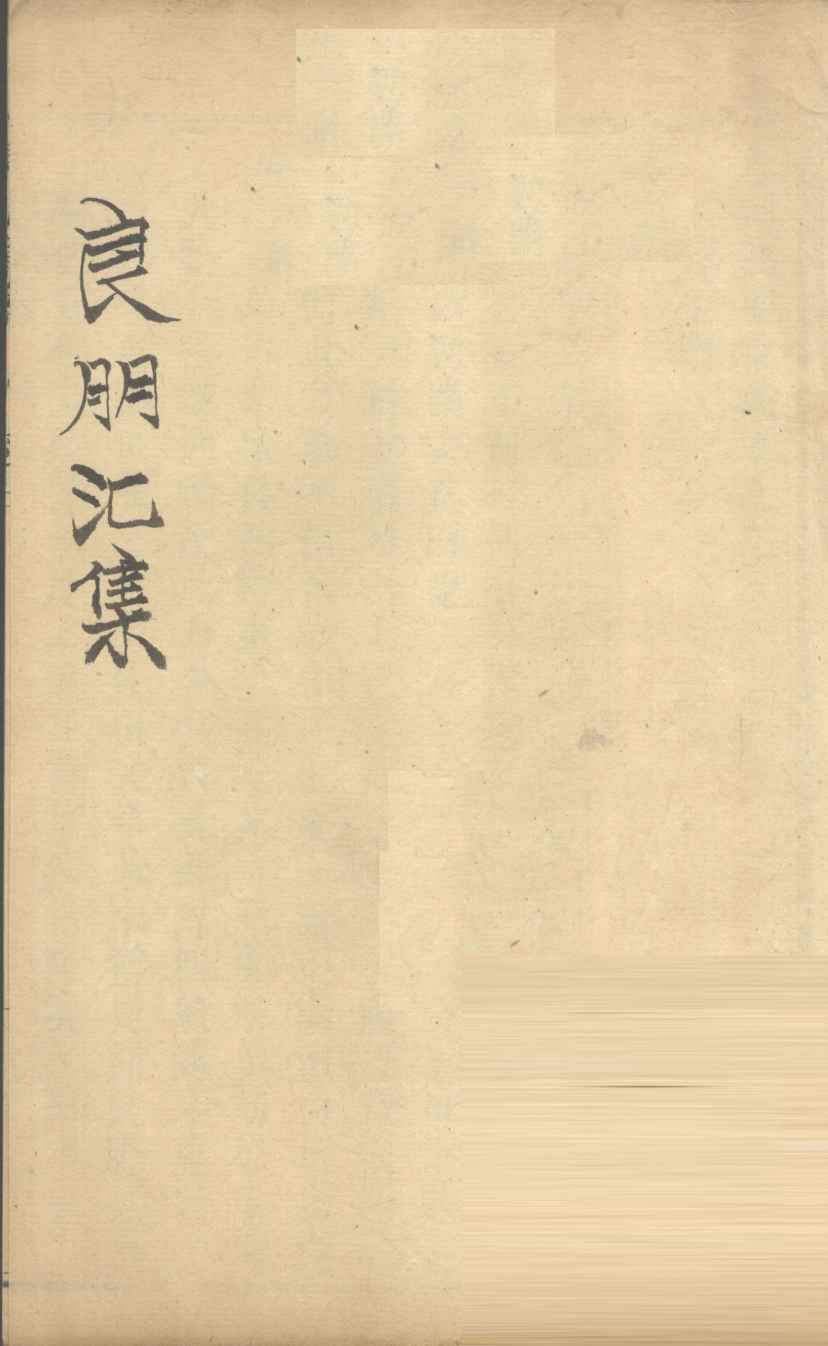 良朋汇集